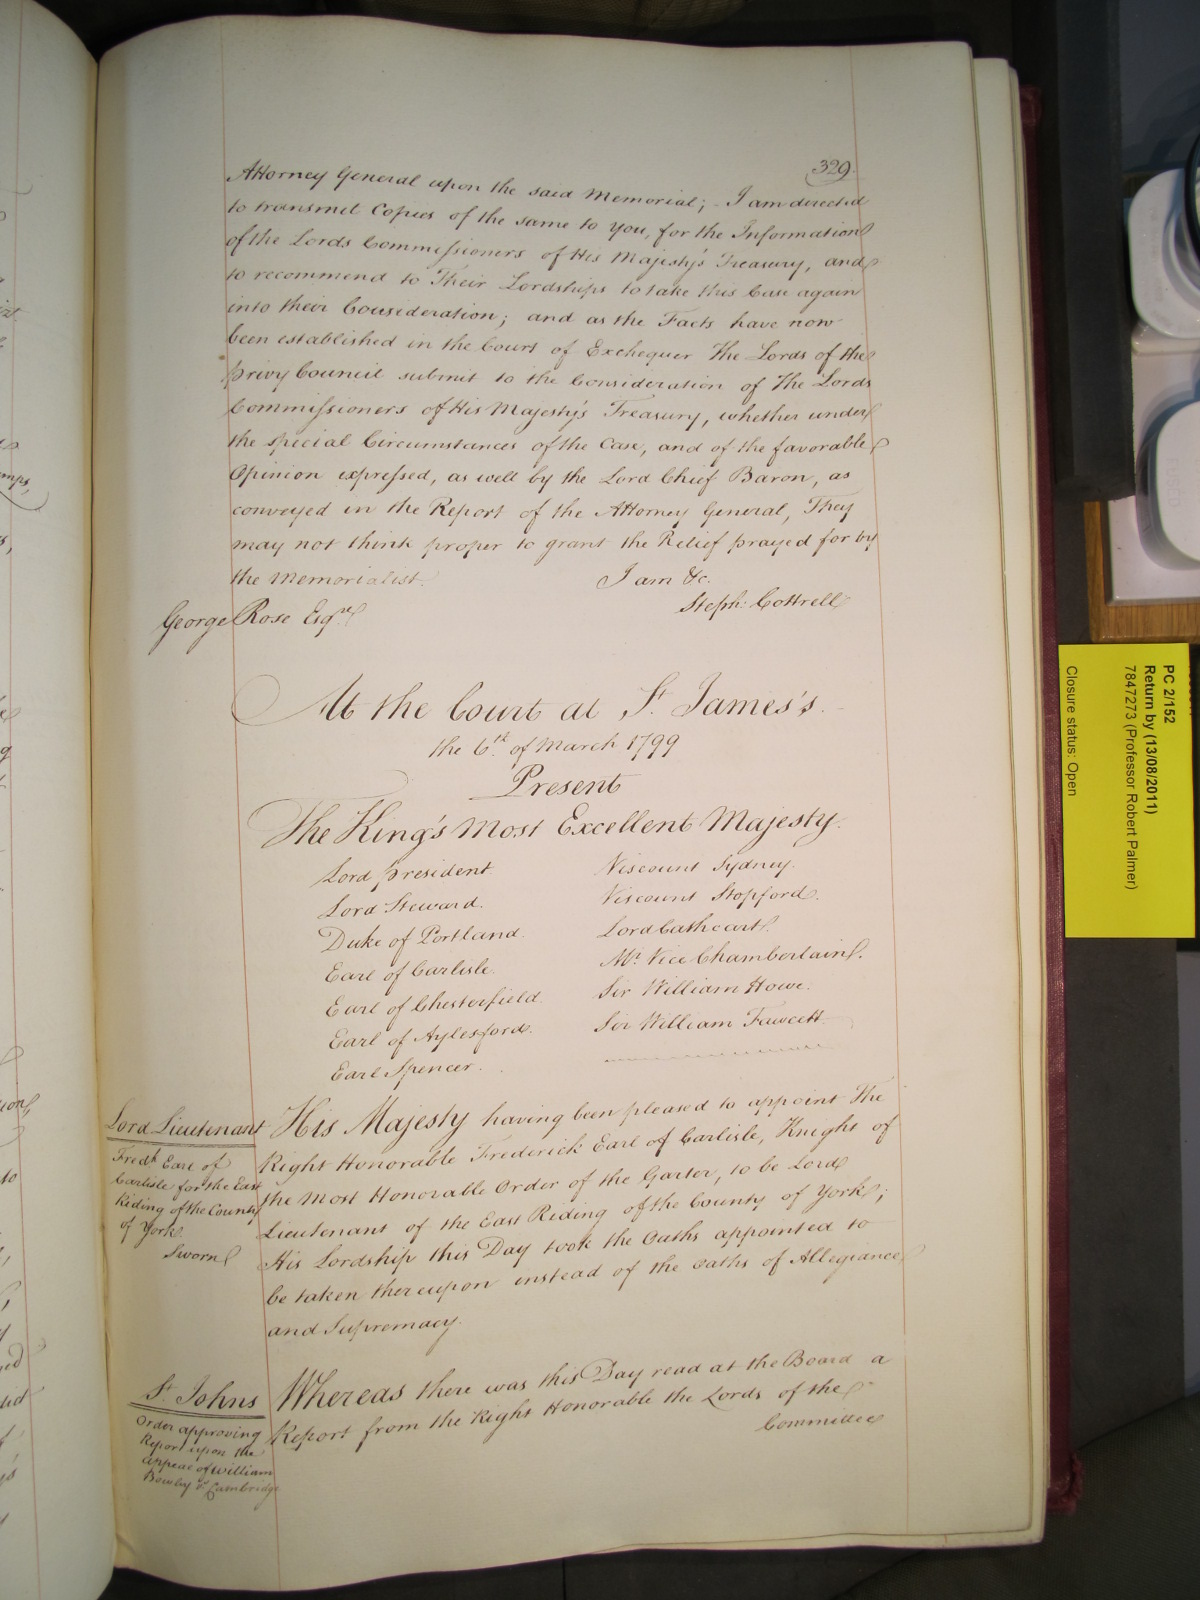 329.
Attorney General upon the said Memorial; - I am directed
to transmit Copies of the same to You, for the Information
of the Lords Commissioners of His Majesty's Treasury, and
to recommend to Their Lordships to take this Case again
into their Consideration; and as the Facts have now
been established in the Court of Exchequer The Lords of the
Privy Council submit to the Consideration of The Lords
Commissioners of His Majesty's Treasury, whether under
the special Circumstances of the Case, and of the favorable
Opinion expressed, as well by the Lord Chief Baron, as
conveyed in the Report of the Attorney General, They
may not think proper to grant the Relief prayed for by
the Memorialist. I am &c.
Steph: Cottrell
George Rose Esqre
At the Court at St. James's.
the 6th of March 1799
Present
The King's Most Excellent Majesty.
Lord President
Lord Steward.
Duke of Portland.
Earl of Carlisle.
Earl of Chesterfield
Earl of Aylesford.
Earl Spencer.
Viscount Sydney.
Viscount Stopford.
Lord Cathcart.
Mr. Vice Chamberlain.
Sir William Howe.
Sir William Fawcett
Lord Lieutenant
Fredk. Earl of
Carlisle for the East
Riding of the County
of York
Sworn
His Majesty having been pleased to appoint The
Right Honorable Frederick Earl of Carlisle, Knight of
the Most Honorable Order of the Garter, to be Lord
Lieutenant of the East Riding of the County of York;
His Lordship this Day took the Oaths appointed to
be taken thereupon instead of the Oaths of Allegiance
and Supremacy.
St. Johns
Order approving
Report upon the
appeal of William
Bowly v. Cambridge
Whereas there was this Day read at the Board a
Report from the Right Honorable the Lords of the
Committee
PC 2/152
Return by (13/08/2011)
7847273 (Professor Robert Palmer)
Closure status: Open